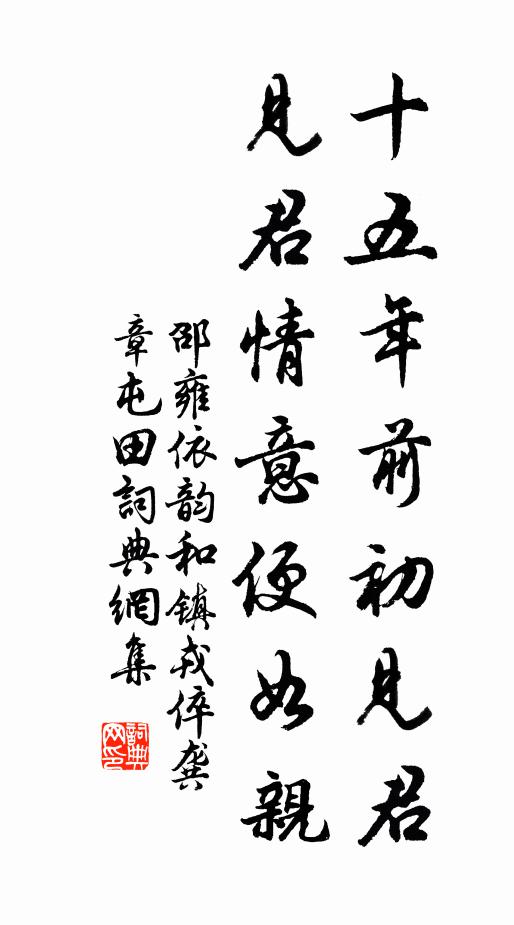 十五年前初見君
見君情意便如親
邵雍依韵和鎮戎倅龔
章屯田詞典網集
詞典
网印